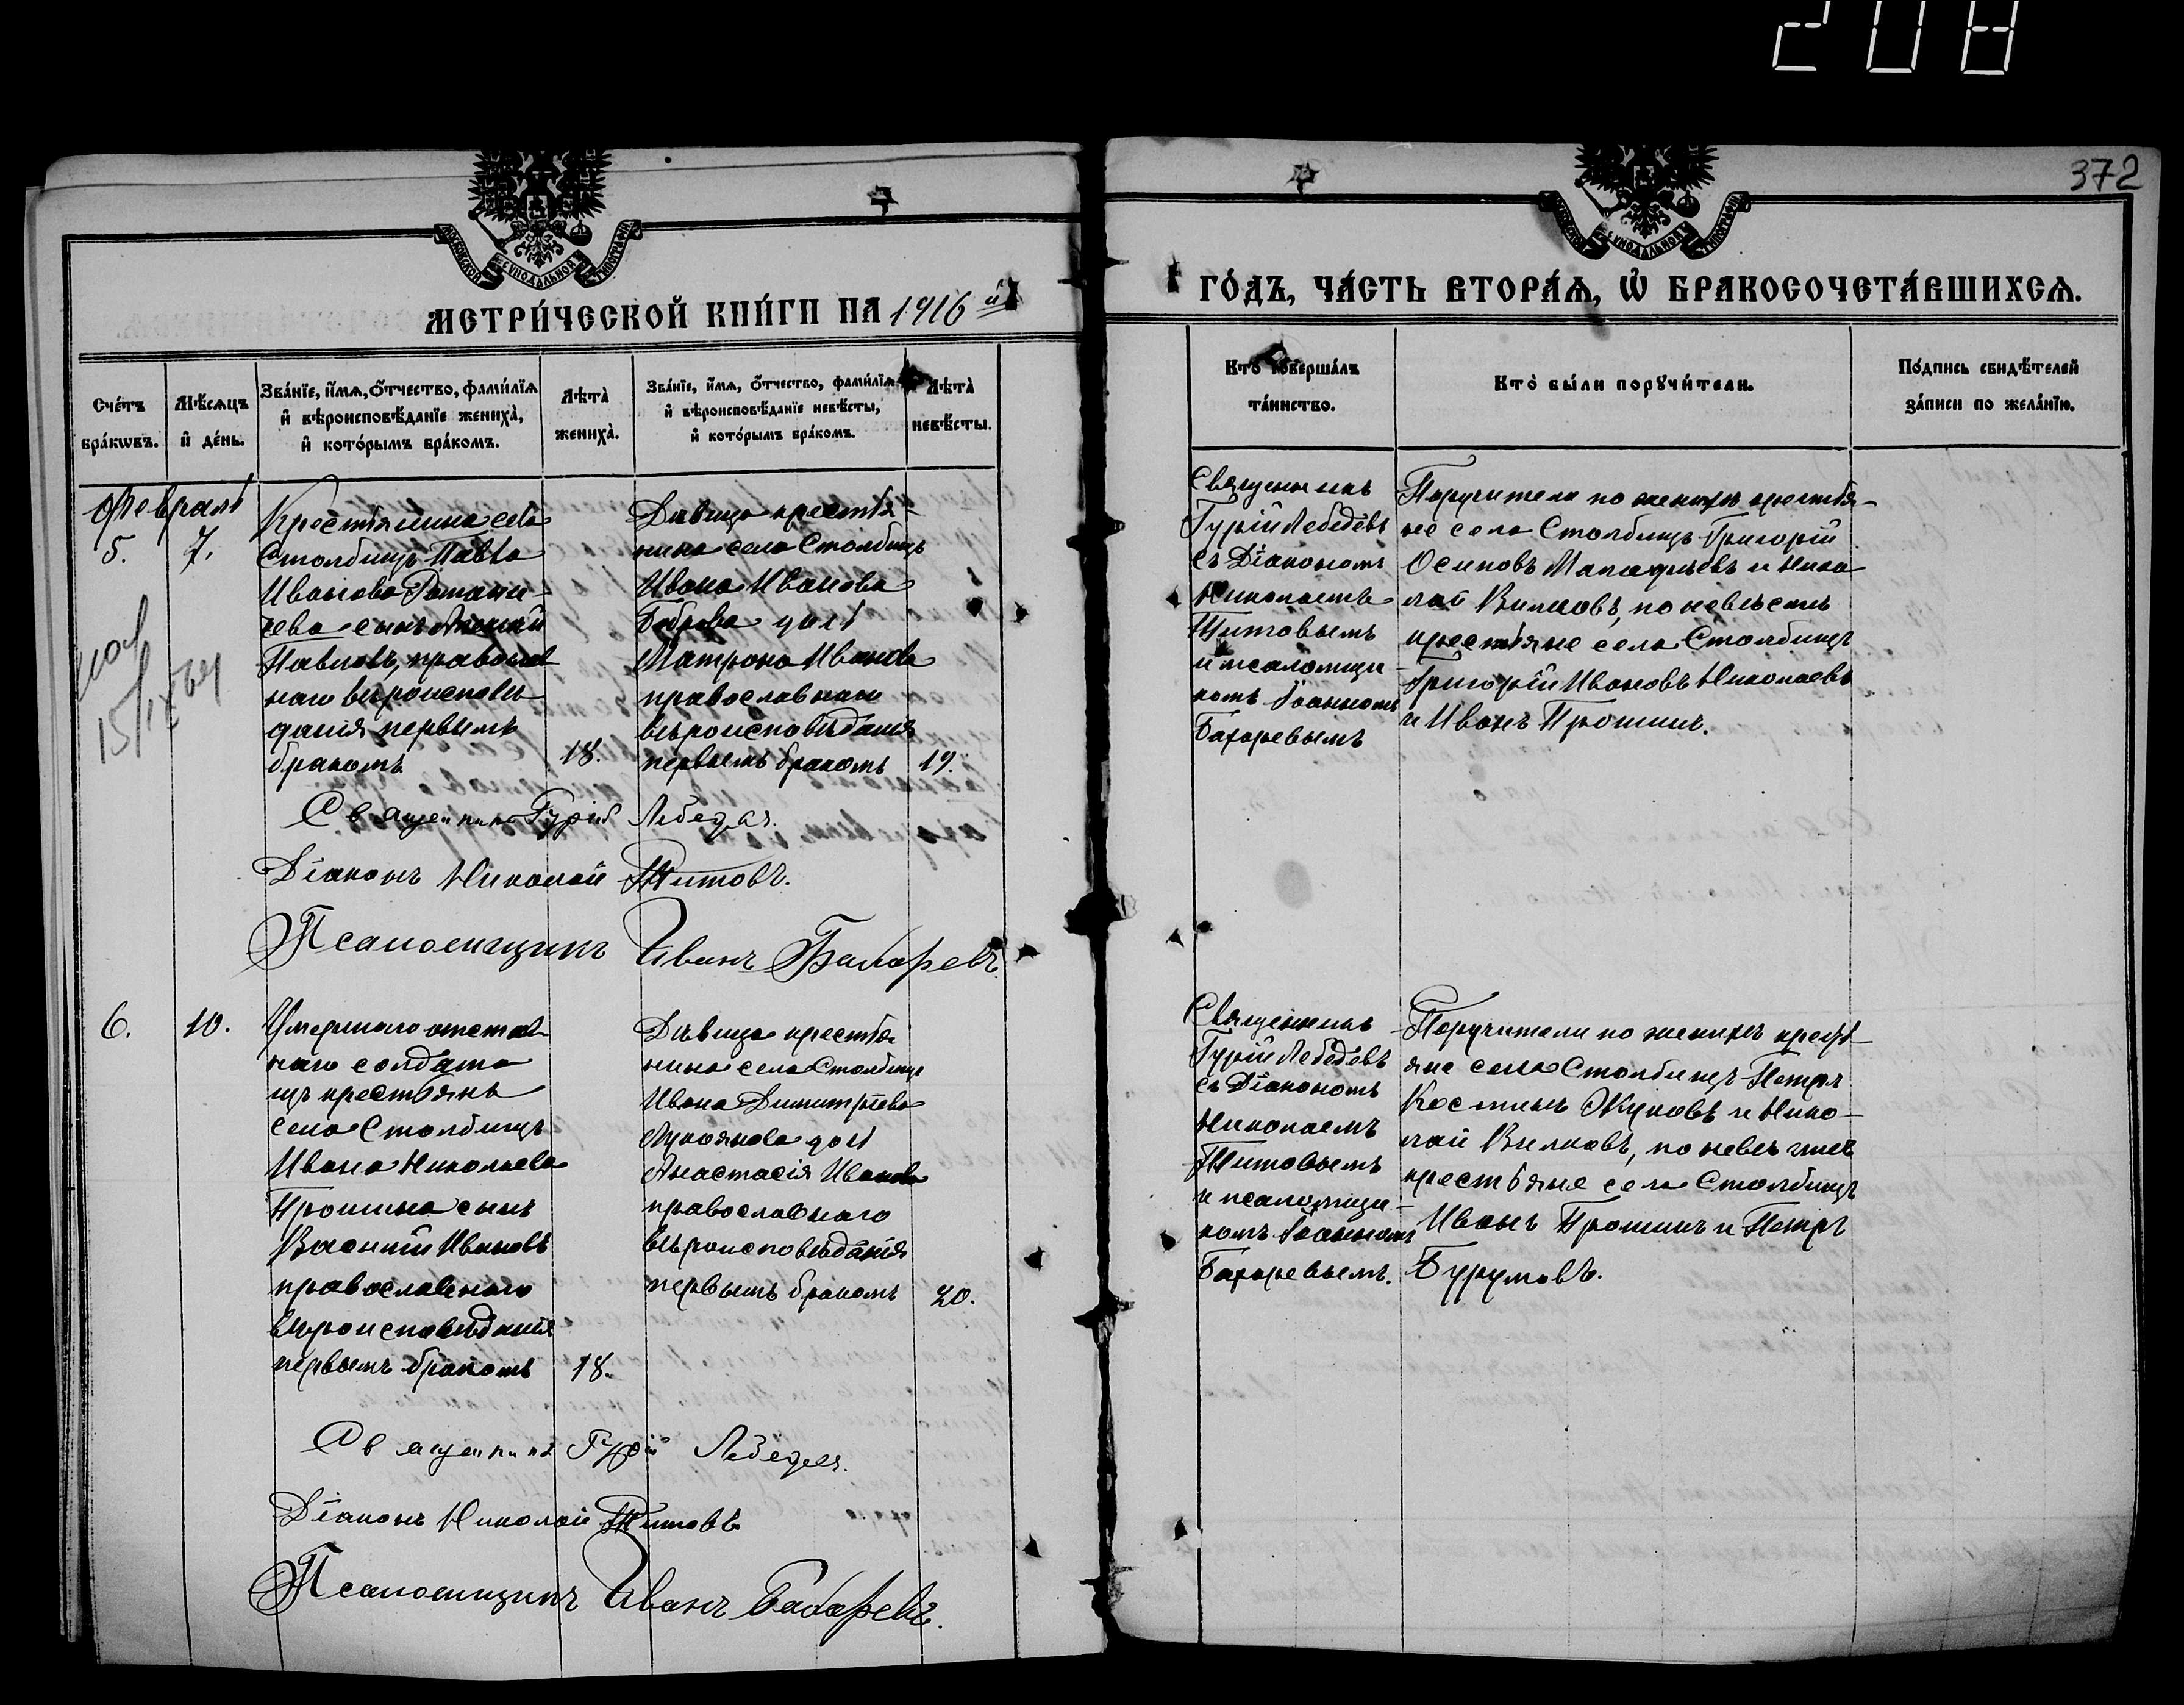 208
372
МОСКОВСКОЙ СѴНОДАЛЬНОЙ ТИПОГРАФІИ
МОСКОВСКОЙ СѴНОДАЛЬНОЙ ТИПОГРАФІИ
МЕТРИ́ЧЕСКОЙ КНИ́ГИ НА 1916 й
ГО́ДЪ, ЧА́СТЬ ВТОРА́Ѧ, Ѽ БРАКОСОЧЕТА́ВШИХСѦ.
Сче́тъ бра́кѡвъ.
Мѣ́сѧцъ и҆ де́нь.
Зва́нїе, и҆́мѧ, ѻ҆́тчество, фами́лїѧ
и҆ вѣроисповѣ́данїе жениха̀,
и҆ кото́рымъ бра́комъ.
Лѣта̀ жениха̀.
Зва́нїе, и҆́мѧ, ѻ҆́тчество, фами́лїѧ
и҆ вѣроисповѣ́данїе невѣ́сты,
и҆ кото́рымъ бра́комъ.
Лѣта̀ невѣ́сты.
Кто̀ соверша́лъ
та́инство.
Кто̀ бы́ли порꙋчи́тели.
По́дпись свидѣ́телей
за́писи по жела́нїю.
Февраль
5.
7.
Крестьянина села
Столбищъ Павла
Иванова Романи-
чева сынъ Алексѣй
Павловъ, православ
наго вѣроисповѣ-
данія первымъ
бракомъ
18.
Дѣвица крестья-
нина села Столбищъ
Ивана Иванова
Боброва дочь
Матрона Иванова
православнаго
вѣроисповѣданія
первымъ бракомъ
19.
Священникъ
Гурій Лебедевъ
съ Діакономъ
Николаемъ
Титовымъ
и псаломщи-
комъ Іоанномъ
Бахаревымъ
Поручители по женихѣ крестья-
не села Столбищъ Григорій
Осиповъ и Нико
лай Вилковъ, по невѣстѣ
крестьяне села Столбищъ
Григорій Ивановъ Николаевъ
и Иванъ Прошинъ.
Священникъ Гурій Лебедевъ.
Діаконъ Николай Титовъ.
Псаломщикъ Иванъ Бахаревъ.
15/IX
6.
10.
Умершаго отстав-
наго солдата
изъ крестьянъ
села Столбищъ
Ивана Николаева
Прошина сынъ
Василій Ивановъ
православнаго
вѣроисповѣданія
первымъ бракомъ
18.
Дѣвица крестья
нина села Столбищъ
Ивана Димитріева
Лукоянова дочь
Анастасія Иванова
православнаго
вѣроисповѣданія
первымъ бракомъ
20.
Священникъ
Гурій Лебедевъ
съ Діакономъ
Николаемъ
Титовымъ
и псаломщи-
комъ Іоанномъ
Бахаревымъ.
Поручители по женихѣ кресть-
яне села Столбищъ Петръ
Костинъ Жуковъ и Нико-
лай Вилковъ, по невѣстѣ
крестьяне села Столбищъ
Иванъ Прошинъ и Петръ
Бурумовъ.
Священникъ Гурій Лебедевъ.
Діаконъ Николай Титовъ
Псаломщикъ Иванъ Бахаревъ.